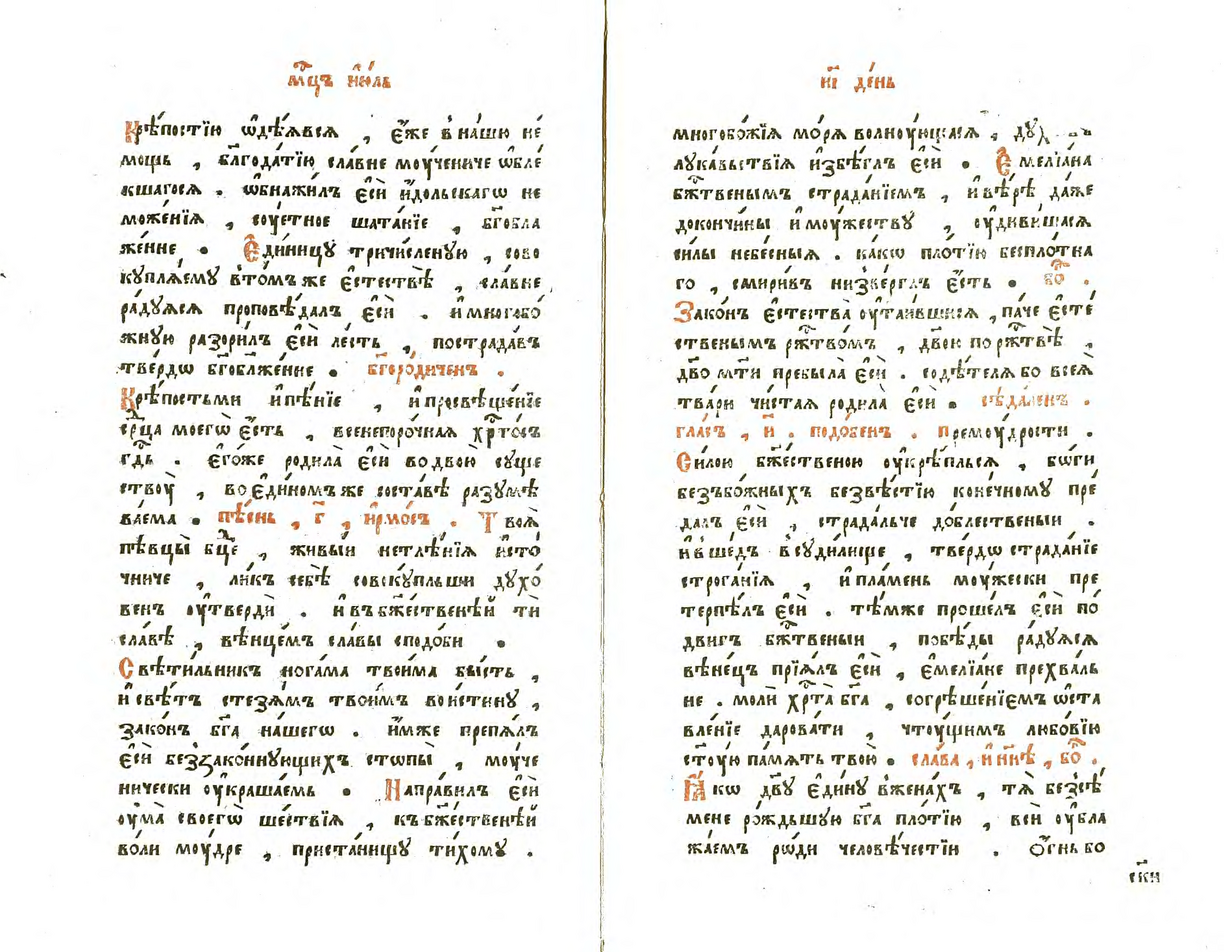 мц҃ъ ию́ль
крѣ́постїю ѡдѣ́ѧвсѧ , є́же в на́шю не́
мощь , блг҃ода́тїю сла́вне моу́чениче ѡбле́
кшагосѧ . ѡбнажи́лъ єсѝ и҆́дольскагѡ не
може́нїѧ , соу́етное шата́нїе , бг҃обла
же́нне . Єди́ницу тричи́сленую , сово
купла́ему в то́мъ же єстествѣ̀ , сла́вне ,
ра́дуѧсѧ проповѣ́далъ єсѝ . и мно́гобо́
жную разори́лъ єсѝ ле́сть , пострада́въ
тве́рдѡ бг҃обл҃же́нне . бг҃оро́диченъ .
Крѣ́постьми и пѣ́нїе , и просвѣще́нїе
ср҃ца моегѡ̀ є́сть , всенепоро́чнаѧ хр҃то́съ
гд҃ь . єго́же родила̀ єсѝ во двою̀ су́ще
ствоу̀ , во єди́номъ же соста́вѣ разумѣ
ва́ема . пѣ́снь , г҃ , ирмо́съ . Твоѧ̀
пѣвцы̀ бц҃е , живы́и нетлѣ́нїѧ исто́
чниче , ли́къ себѣ̀ совокупльши духо́
венъ оутвердѝ . и въ бж҃е́ственѣй тѝ
сла́вѣ , вѣнце́мъ сла́вы сподо́би .
Свѣти́льникъ нога́ма твои́ма бы́сть ,
и свѣ́тъ стезѧ́мъ твои́мъ вои́стину ,
зако́нъ бг҃а на́шегѡ . и́мже препѧ́лъ
єсѝ беззако́ннующихъ стѡпы̀ , моу́че
нически оукраша́емь . Напра́вилъ єсѝ
оума̀ своегѡ̀ ше́ствїѧ , къ бж҃е́ственѣй
во́ли моу́дре , приста́нищу ти́хому .
и҃і де́нь
многобо́жїѧ мо́рѧ волноу́ющаѧсѧ , дух
лука́вьствїѧ избѣ́глъ єсѝ . Ємелїа́на
бж҃твенымъ страда́нїемъ , и вѣ́рѣ да́же
до кончи́ны и моу́жеству , оудиви́шасѧ
си́лы небе́сныѧ . ка́кѡ пло́тїю беспло́тна
го , смири́въ низве́рглъ є́сть . бо҃ .
Зако́нъ єстества̀ оутаи́вшиисѧ , па́че єсте́
ственымъ рж҃тво́мъ , дв҃ою по рж҃твѣ̀ ,
дв҃о мт҃и пребыла̀ єсѝ . содѣ́телѧ бо всеѧ̀
тва́ри чи́стаѧ родила̀ єсѝ . сѣда́ленъ .
гла́съ , и҃ . подо́бенъ . Премоу́дрости .
Си́лою бж҃е́ственою оукрѣ́пльсѧ , бо́ги
безъбо́жныхъ безвѣ́стїю коне́чному пре́
далъ єсѝ , страда́льче до́блественыи .
и вше́дъ в суди́лище , тве́рдѡ страда́нїе
строга́нїѧ , и пла́мень моу́жески пре
терпѣ́лъ єсѝ . тѣ́мже проше́лъ єсѝ по́
двигъ бж҃твеныи , побѣ́ды ра́дуѧсѧ
вѣне́цъ прїѧ́лъ єсѝ , ємелїа́не прехва́ль
не . молѝ хр҃та̀ бг҃а , согрѣше́нїемъ ѡста
вле́нїе дарова́ти , чтоу́щимъ любо́вїю
ст҃оую па́мѧть твою̀ . сла́ва , и ны҃нѣ , бо҃ .
Ꙗ́кѡ дв҃у єди́ну в жена́хъ , тѧ̀ безсѣ́
мене ро́ждьшую бг҃а пло́тїю , всѝ оубла
жа́емъ ро́ди человѣ́честїи . Ѻ́гнь бо
скѝ